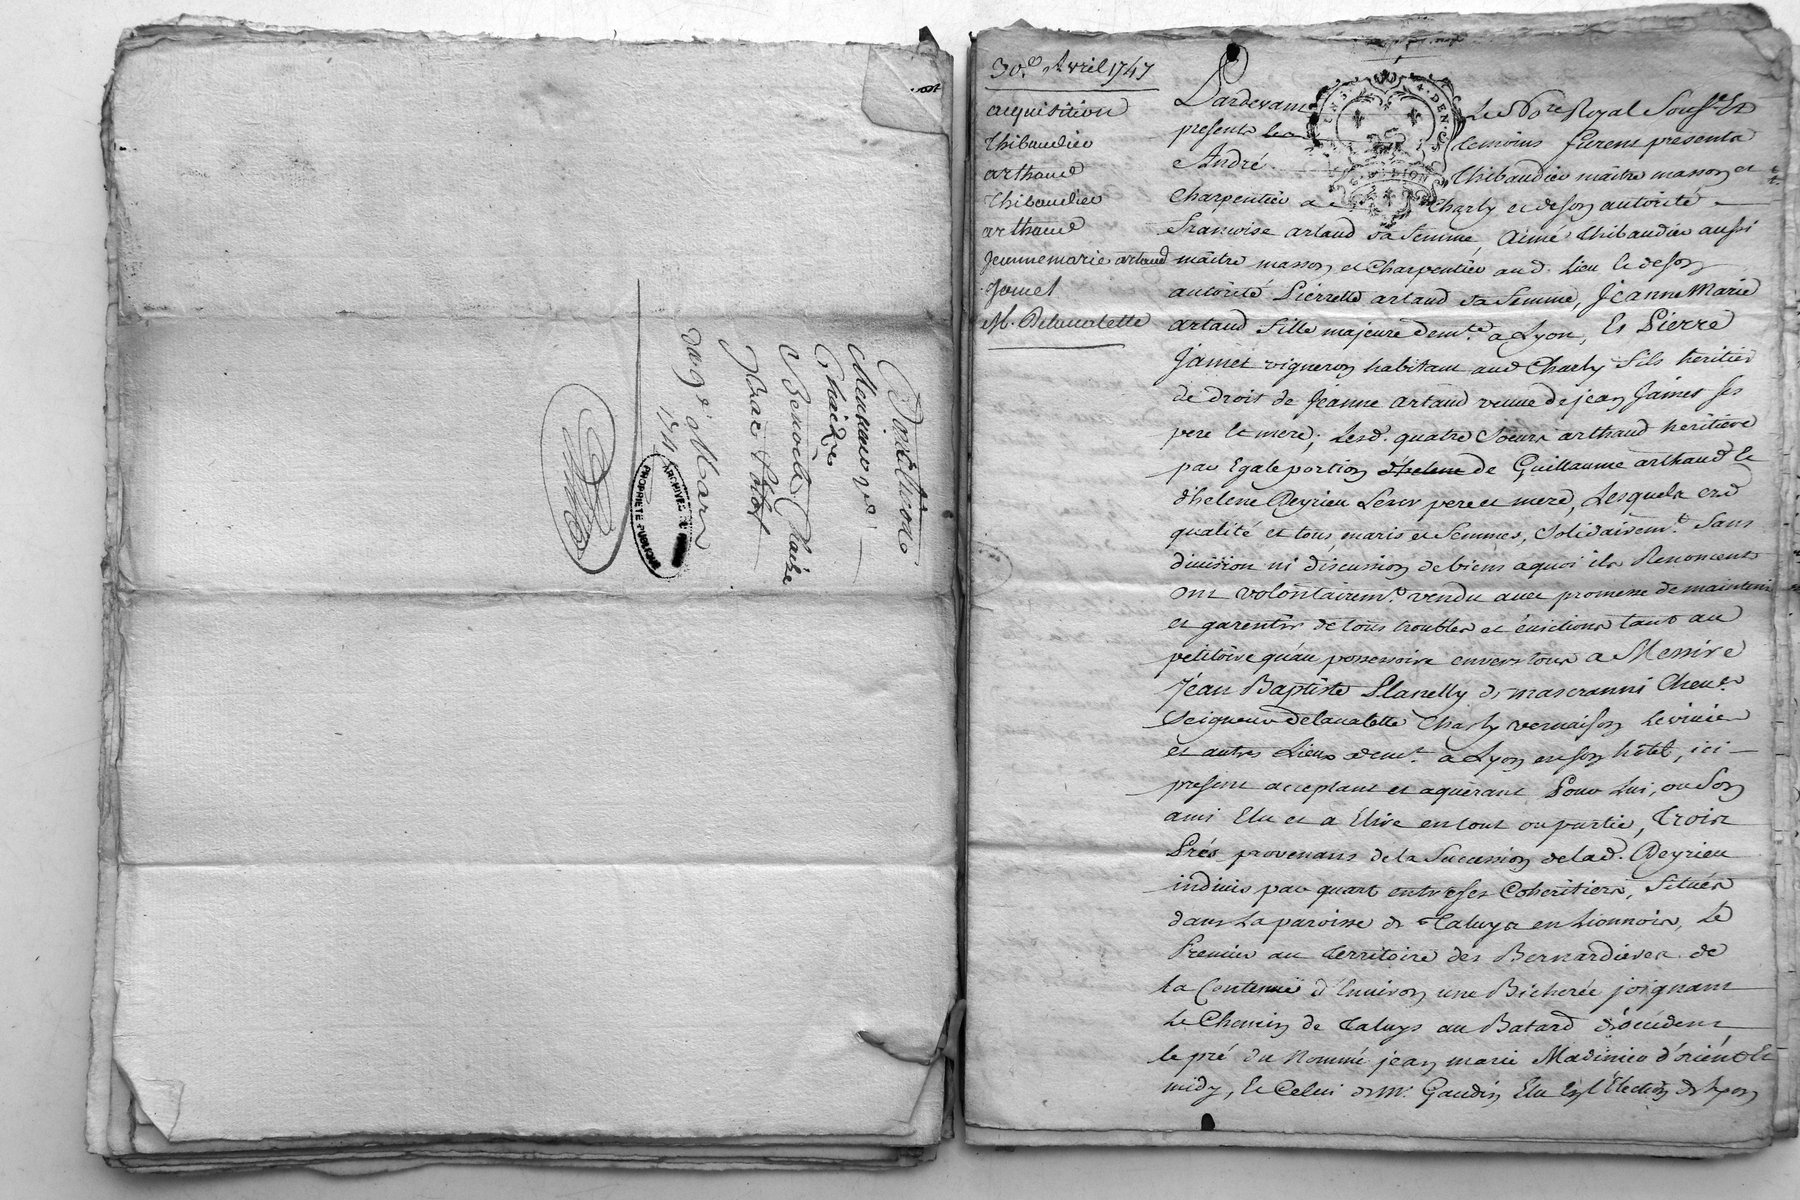 Donation
Mutuue
Chaize
Benoite Chaize
Isac Potot
du 9e Mars
174
ARCHIVES DU
PROPRIETE PUBLIQUE
30.e Avril 1747
acquisition
Thibaudier
arthaud
Thibaudier
arthaud
Jeannemarie artaud
Jamet
M. Delavalette
Pardevant Le No.re Royal Sous.né Et
presents les temoins furent presents
André Thibaudier maître masson et
Charpentier a Charly et de son autorité
francoise artaud sa femme, Aimé Thibaudier aussi
maître masson et Charpentier aud. Lieu et de son
autorité Pierrette artaud sa femme, Jeanne Marie
artaud fille majeure dem.te a Lyon, Et Pierre
Jamet vigneron habitant aud Charly fils heritier
de droit de Jeanne artaud veuve de jean Jamet ses
pere et mere; Lesd. quatre soeurs arthaud heritiere
par Egale portion d'helene de Guillaume arthaud et
d'helene Deyrieu Leurs pere et mere, Lesquels end
qualité et tous maris et femmes, solidairem.t sans
division ni discussion de biens a quoi ils Renoncent
ont volontairem.t vendu avec promesse de maintenir
et garentir de tous troubles et évictions tant au
petitoire qu'au possessoire envers tous a Messire
Jean Baptiste Planelly de mascranni Chev.er
Seigneur delavalette Charly vernaison Levivier
et autres Lieux dem.t a Lyon en son hôtel, ici
present acceptant et aquerant Pour Lui, ou Son
ami Elu et a Elire en tout ou partie, Trois
Prés provenans de la Sucession de lad. Deyrieu
indivis par quart entre ses Coheritiers, Situés
dans La paroisse de Taluys en Lionnois, Le
Premier au Territoire des Bernardieres de
la Contenue d'Environ une Bicherée joignant
Le Chemin de Taluys au Batard d'occident
le pré du Nommé jean marie Madinier d'orient et
midy, Et Celui de Mr. Gaudin Elu En l'Election de Lyon